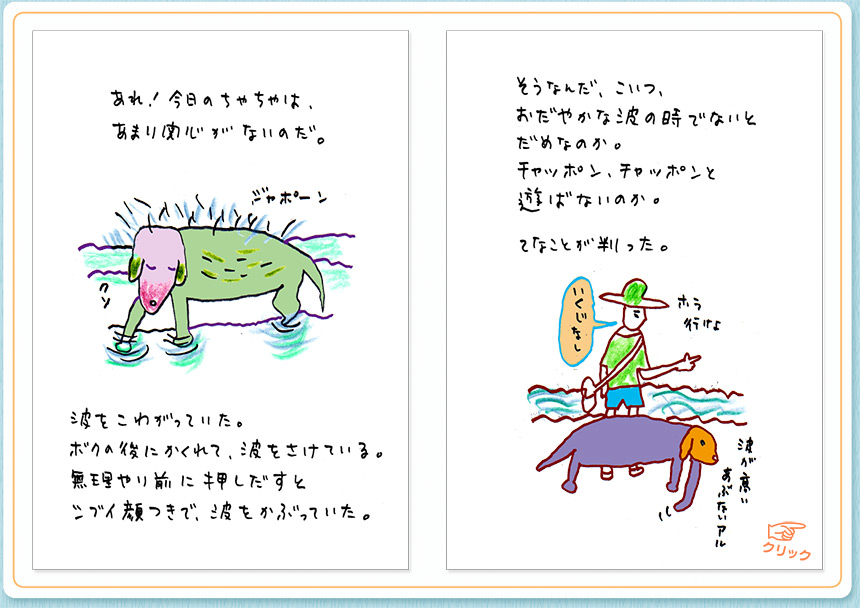 あれ！今日のちゃちゃは、
あまり関心がないのだ。
ジャポーン
クン
波をこわがっていた。
ボクの後にかくれて、波をさけている。
無理やり前に押しだすと
シブイ顔つきで、波をかぶっていた。
そうなんだ、こいつ、
おだやかな波の時でないと
だめなのか。
チャッポン、チャッポンと
遊ばないのか。
てなことが判った。
いくじなし
ホラ
行けよ
波が高い
あぶないアル
クリック